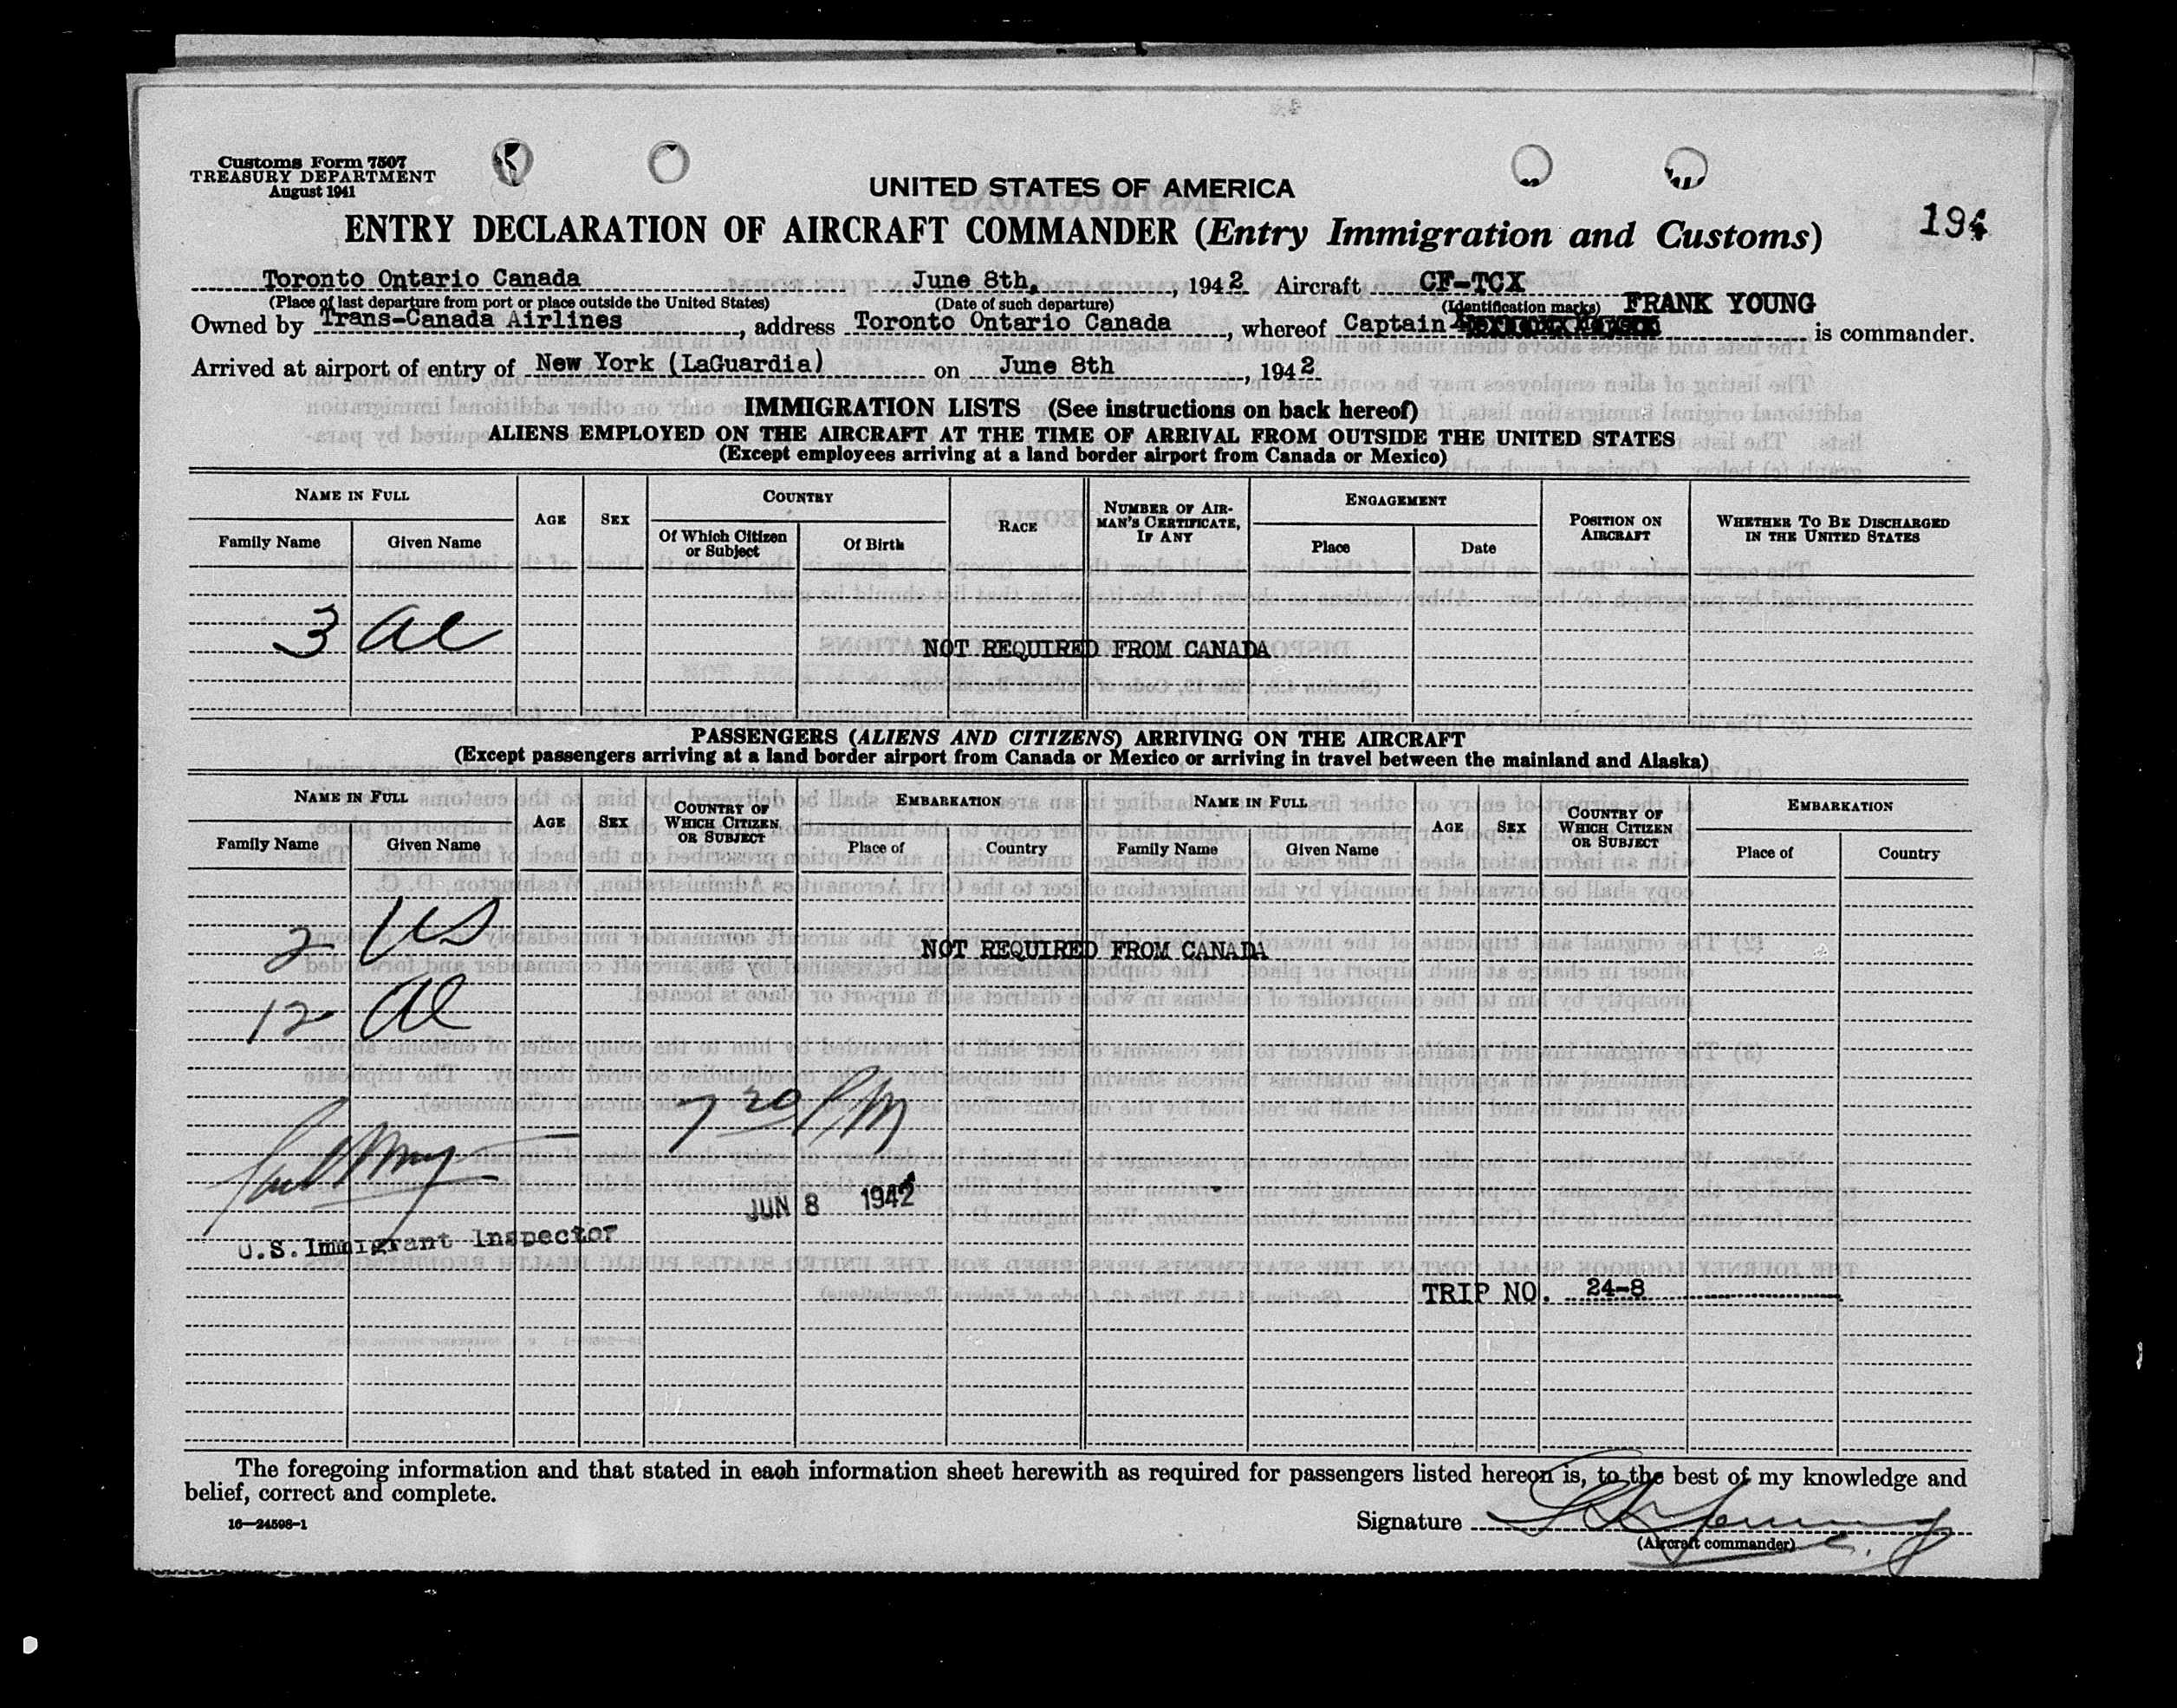 Customs Form 7507
TREASURY DEPARTMENT
August 1941
UNITED STATES OF AMERICA
ENTRY DECLARATION OF AIRCRAFT COMMANDER (Entry Immigration and Customs)
194
Toronto Ontario Canada June 8th, , 1942 Aircraft CF-TCX
(Place of last departure from port or place outside the United States) (Date of such departure) (Identification marks) FRANK YOUNG
Owned by Trans-Canada Airlines, address Toronto Ontario Canada, whereof Captain is commander.
Arrived at airport of entry of New York (LaGuardia) on June 8th, 1942
IMMIGRATION LISTS (See instructions on back hereof)
ALIENS EMPLOYED ON THE AIRCRAFT AT THE TIME OF ARRIVAL FROM OUTSIDE THE UNITED STATES
(Except employees arriving at a land border airport from Canada or Mexico)
NAME IN FULL
Family Name Given Name
AGE
SEX
COUNTRY
Of Which Citizen or Subject
Of Birth
RACE
NUMBER OF AIRMAN'S CERTIFICATE, IF ANY
ENGAGEMENT
Place Date
POSITION ON AIRCRAFT
WHETHER TO BE DISCHARGED IN THE UNITED STATES
3 al
NOT REQUIRED FROM CANADA
PASSENGERS (ALIENS AND CITIZENS) ARRIVING ON THE AIRCRAFT
(Except passengers arriving at a land border airport from Canada or Mexico or arriving in travel between the mainland and Alaska)
NAME IN FULL
Family Name Given Name
AGE
SEX
COUNTRY OF WHICH CITIZEN OR SUBJECT
EMBARKATION
Place of Country
NAME IN FULL
Family Name Given Name
AGE
SEX
COUNTRY OF WHICH CITIZEN OR SUBJECT
EMBARKATION
Place of Country
2 US
NOT REQUIRED FROM CANADA
12 al
7 30 PM
JUN 8 1942
U.S. Immigrant Inspector
TRIP NO. 24-8
The foregoing information and that stated in each information sheet herewith as required for passengers listed hereon is, to the best of my knowledge and
belief, correct and complete.
16—24598-1
Signature
(Aircraft commander)